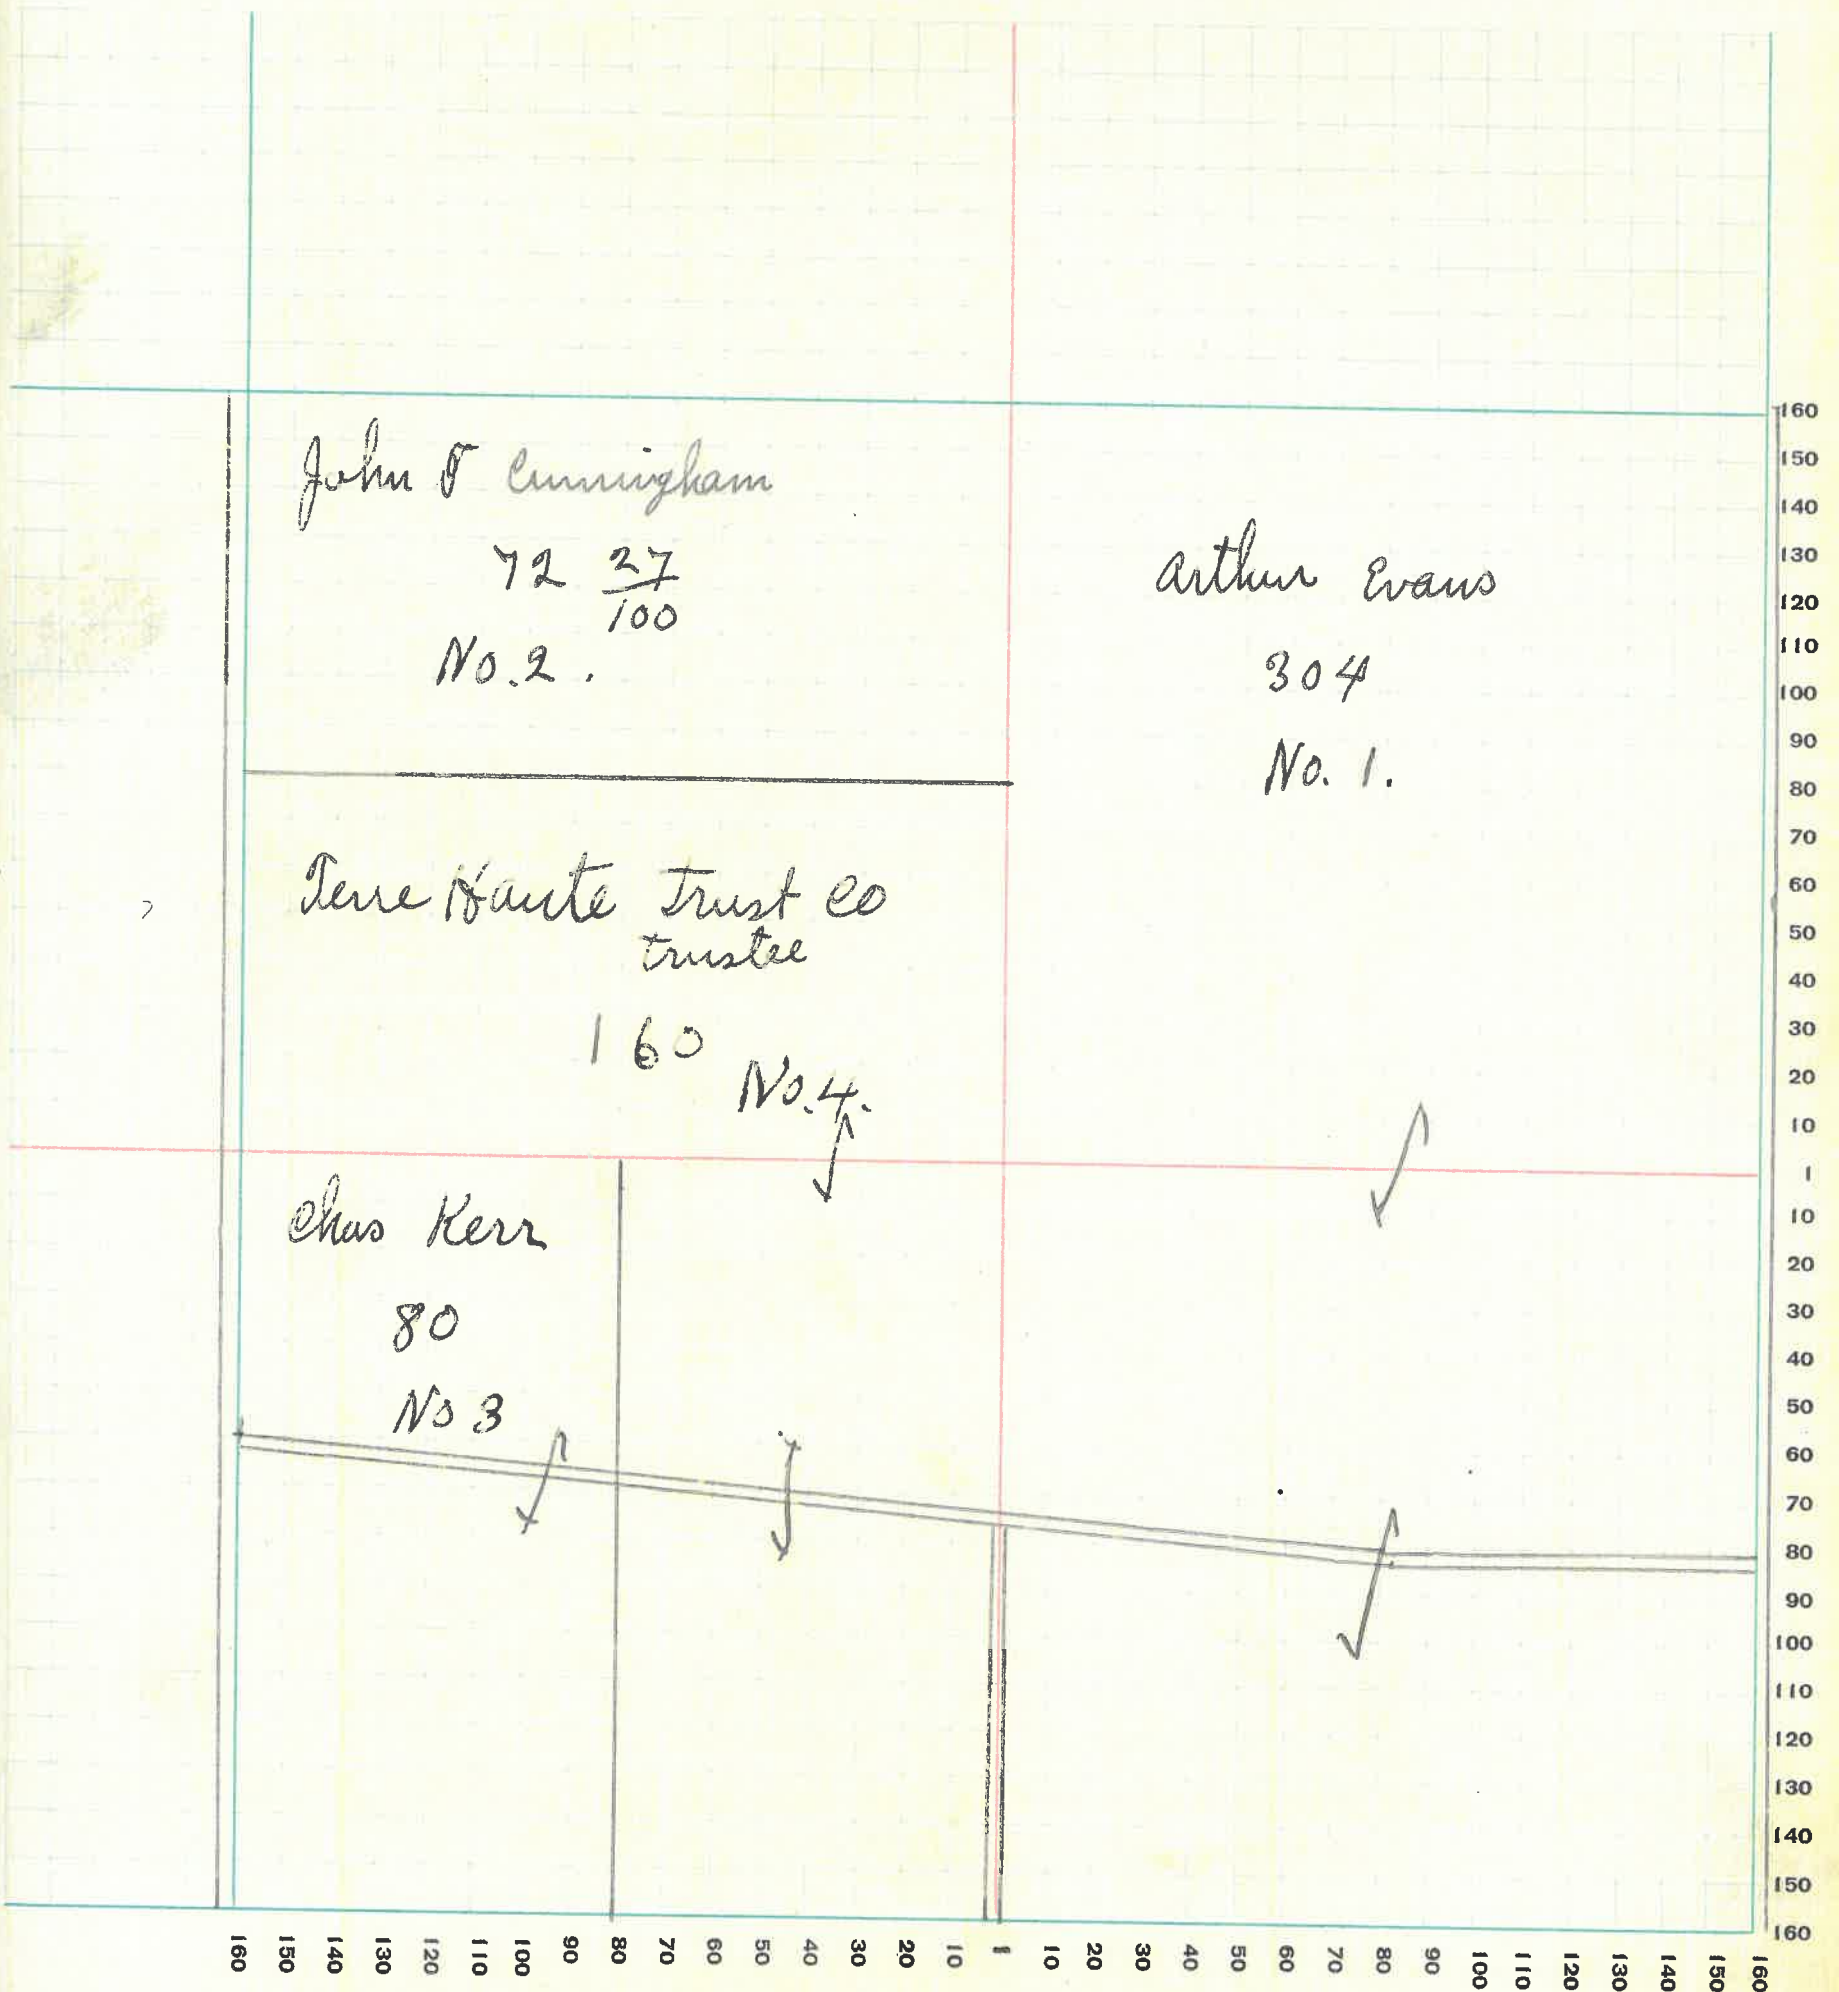 John T Cunningham
72 27/100
No. 2.
Arthur Evans
304
No. 1.
Terre Haute Trust Co
trustee
160
No. 4.
Chas Kerr
80
No 3
160
150
140
130
120
110
100
90
80
70
60
50
40
30
20
10
1
10
20
30
40
50
60
70
80
90
100
110
120
130
140
150
160
160 150 140 130 120 110 100 90 80 70 60 50 40 30 20 10 1 10 20 30 40 50 60 70 80 90 100 110 120 130 140 150 160